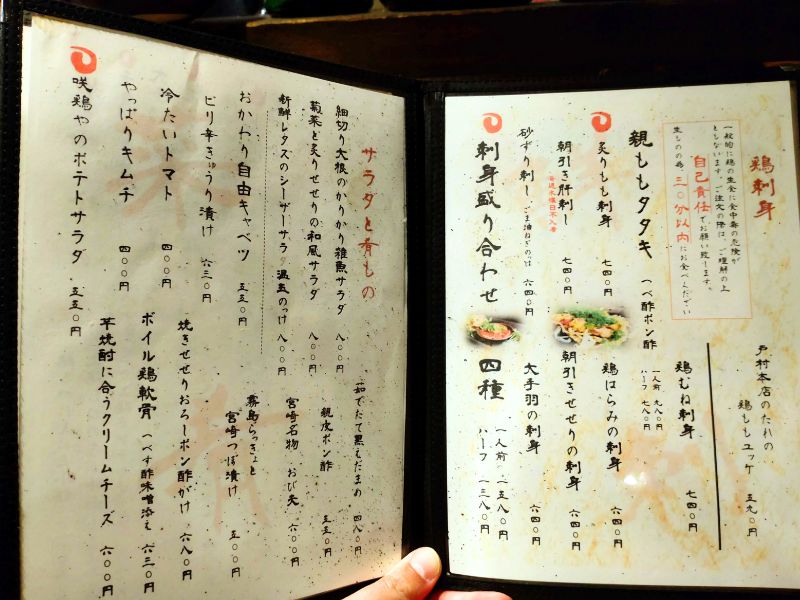 鶏刺身
一般的に鶏の生食に食中毒の危険が
ともないます。ご注文の際は、ご理解の上
自己責任でお願い致します。
生ものの為、三〇分以内にお食べください
戸村本店のたれの
鶏ももユッケ 五九〇円
親ももタタキ 一人前 九八〇円
ハーフ 七八〇円
つべ酢ポン酢
鶏むね刺身 七四〇円
炙りもも刺身 七四〇円
鶏はらみの刺身 六四〇円
朝引き肝刺し 七四〇円
毎週木曜日不入荷
朝引きせせりの刺身 六四〇円
砂ずり刺し ごま油ねぎのっけ 六四〇円
大手羽の刺身 六四〇円
刺身盛り合わせ 四種 一人前 二五八〇円
ハーフ 一三八〇円
サラダと肴もの
細切り大根のかりかり雑魚サラダ 八〇〇円
菊菜と炙りせせりの和風サラダ 八〇〇円
新鮮レタスのシーザーサラダ 温玉のっけ 八〇〇円
おかわり自由キャベツ 五五〇円
ピリ辛きゅうり漬け 六三〇円
冷たいトマト 四〇〇円
やっぱりキムチ 四〇〇円
咲鶏やのポテトサラダ 五五〇円
茹でたて黒えだまめ 四八〇円
親皮ポン酢 五五〇円
宮崎名物 おび天 六〇〇円
霧島らっきょと
宮崎つぼ漬け 五〇〇円
焼きせせりおろしポン酢がけ 六八〇円
ボイル鶏軟骨 つべす酢味噌添え 六三〇円
芋焼酎に合うクリームチーズ 六〇〇円